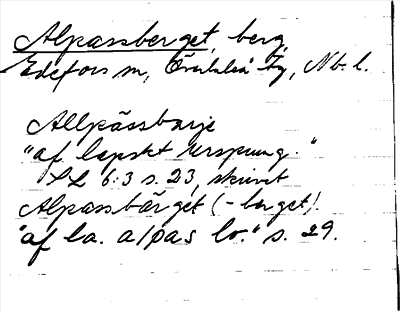 Alpassberget, berg,
Edefors sn, Överluleå tg, Nb. l.
Allpässbärje
"af lapskt ursprung."
SL 6:3 s. 23, skrivet
Alpassbärget (-berget).
"af la. alpas lo." s. 29.